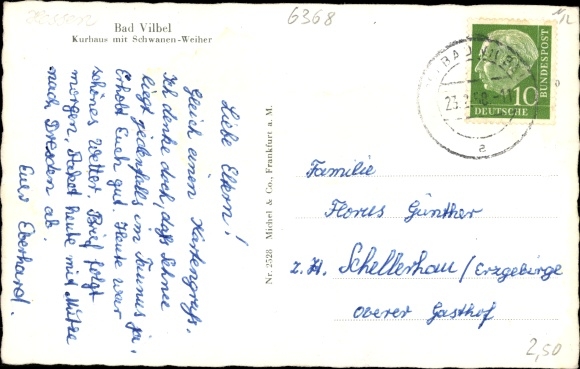 Hessen
Bad Vilbel
Kurhaus mit Schwanen-Weiher
6368
Liebe Eltern!
Gleich einen Kartengruß.
Ich denke doch, daß Schnee
liegt, jedenfalls im Taunus ja.
Erholt Euch gut. Heute war
schönes Wetter. Brief folgt
morgen, Paket heute mit Mütze
nach Dresden ab.
Euer Eberhard.
Nr. 2528 Michel & Co., Frankfurt a. M.
BAD
23.
a
10
DEUTSCHE
BUNDESPOST
Familie
Günther
z. Zt. Schellerhau / Erzgebirge
Oberer Gasthof
2,50